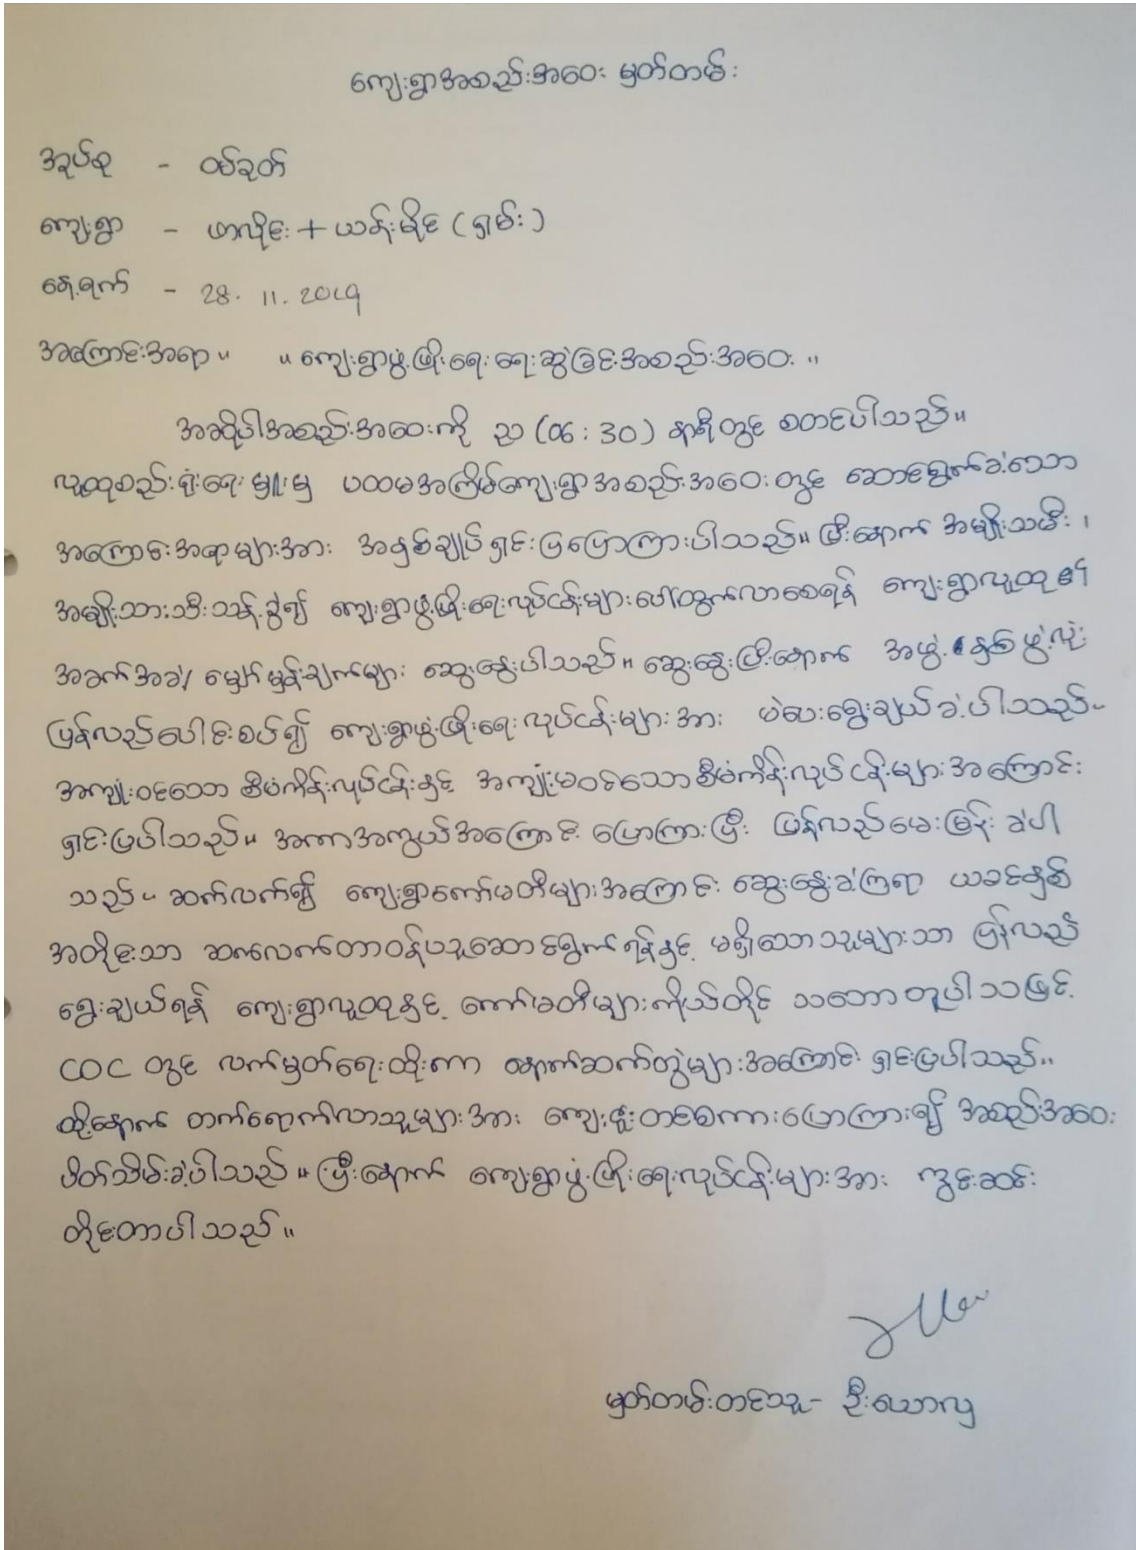 ကျေးရွာအစည်းအဝေး မှတ်တမ်း
အုပ်စု - ဝမ်ခုတ်
ကျေးရွာ - ဟာလိုင်း + ယန်းမိုင် (ရှမ်း)
နေ့ရက် - 28. 11. 2019
အကြောင်းအရာ။ ။ ကျေးရွာဖွံ့ဖြိုးရေး ရေးဆွဲခြင်းအစည်းအဝေး ။
အဆိုပါအစည်းအဝေးကို ည (06 : 30) နာရီတွင် စတင်ပါသည်။
လူထုစည်းရုံးရေးမှူးမှ ပထမအကြိမ်ကျေးရွာအစည်းအဝေးတွင် ဆောင်ရွက်ခဲ့သော
အကြောင်းအရာများအား အနှစ်ချုပ်ရှင်းပြပြောကြားပါသည်။ ပြီးနောက် အမျိုးသမီး၊
အမျိုးသားသီးသန့်ခွဲ၍ ကျေးရွာဖွံ့ဖြိုးရေးလုပ်ငန်းများပေါ်ထွက်လာစေရန် ကျေးရွာလူထု၏
အခက်အခဲ၊ မျှော်မှန်းချက်များ ဆွေးနွေးပါသည်။ ဆွေးနွေးပြီးနောက် အဖွဲ့နှစ်ဖွဲ့လုံး
ပြန်လည်ပေါင်းစပ်၍ ကျေးရွာဖွံ့ဖြိုးရေးလုပ်ငန်းများအား မဲပေးရွေးချယ်ခဲ့ပါသည်။
အကျုံးဝင်သော စီမံကိန်းလုပ်ငန်းနှင့် အကျုံးမဝင်သောစီမံကိန်းလုပ်ငန်းများအကြောင်း
ရှင်းပြပါသည်။ အကာအကွယ်အကြောင်း ပြောကြားပြီး ပြန်လည်မေးမြန်းခဲ့ပါ
သည်။ ဆက်လက်၍ ကျေးရွာကော်မတီများအကြောင်း ဆွေးနွေးခဲ့ကြရာ ယခင်နှစ်
အတိုင်းသာ ဆက်လက်တာဝန်ယူဆောင်ရွက်ရန်နှင့် မရှိသောသူများသာ ပြန်လည်
ရွေးချယ်ရန် ကျေးရွာလူထုနှင့် ကော်မတီများကိုယ်တိုင် သဘောတူပါသဖြင့်
COC တွင် လက်မှတ်ရေးထိုးကာ နောက်ဆက်တွဲများအကြောင်း ရှင်းပြပါသည်။
ထို့နောက် တက်ရောက်လာသူများအား ကျေးဇူးတင်စကားပြောကြား၍ အစည်းအဝေး
ပိတ်သိမ်းခဲ့ပါသည်။ ပြီးနောက် ကျေးရွာဖွံ့ဖြိုးရေးလုပ်ငန်းများအား ကွင်းဆင်း
တိုင်းတာပါသည်။
မှတ်တမ်းတင်သူ - ဦးယောလု